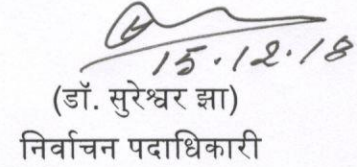 15.12.18
(डॉ. सुरेश्वर झा)
निर्वाचन पदाधिकारी